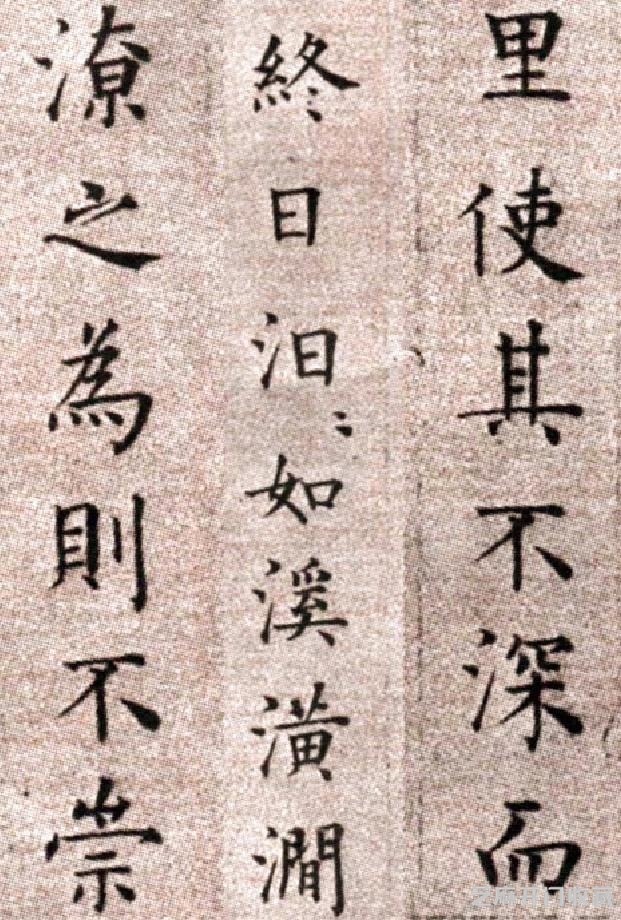 里使其不深而
終日汩〻如溪潢澗
潦之為則不崇